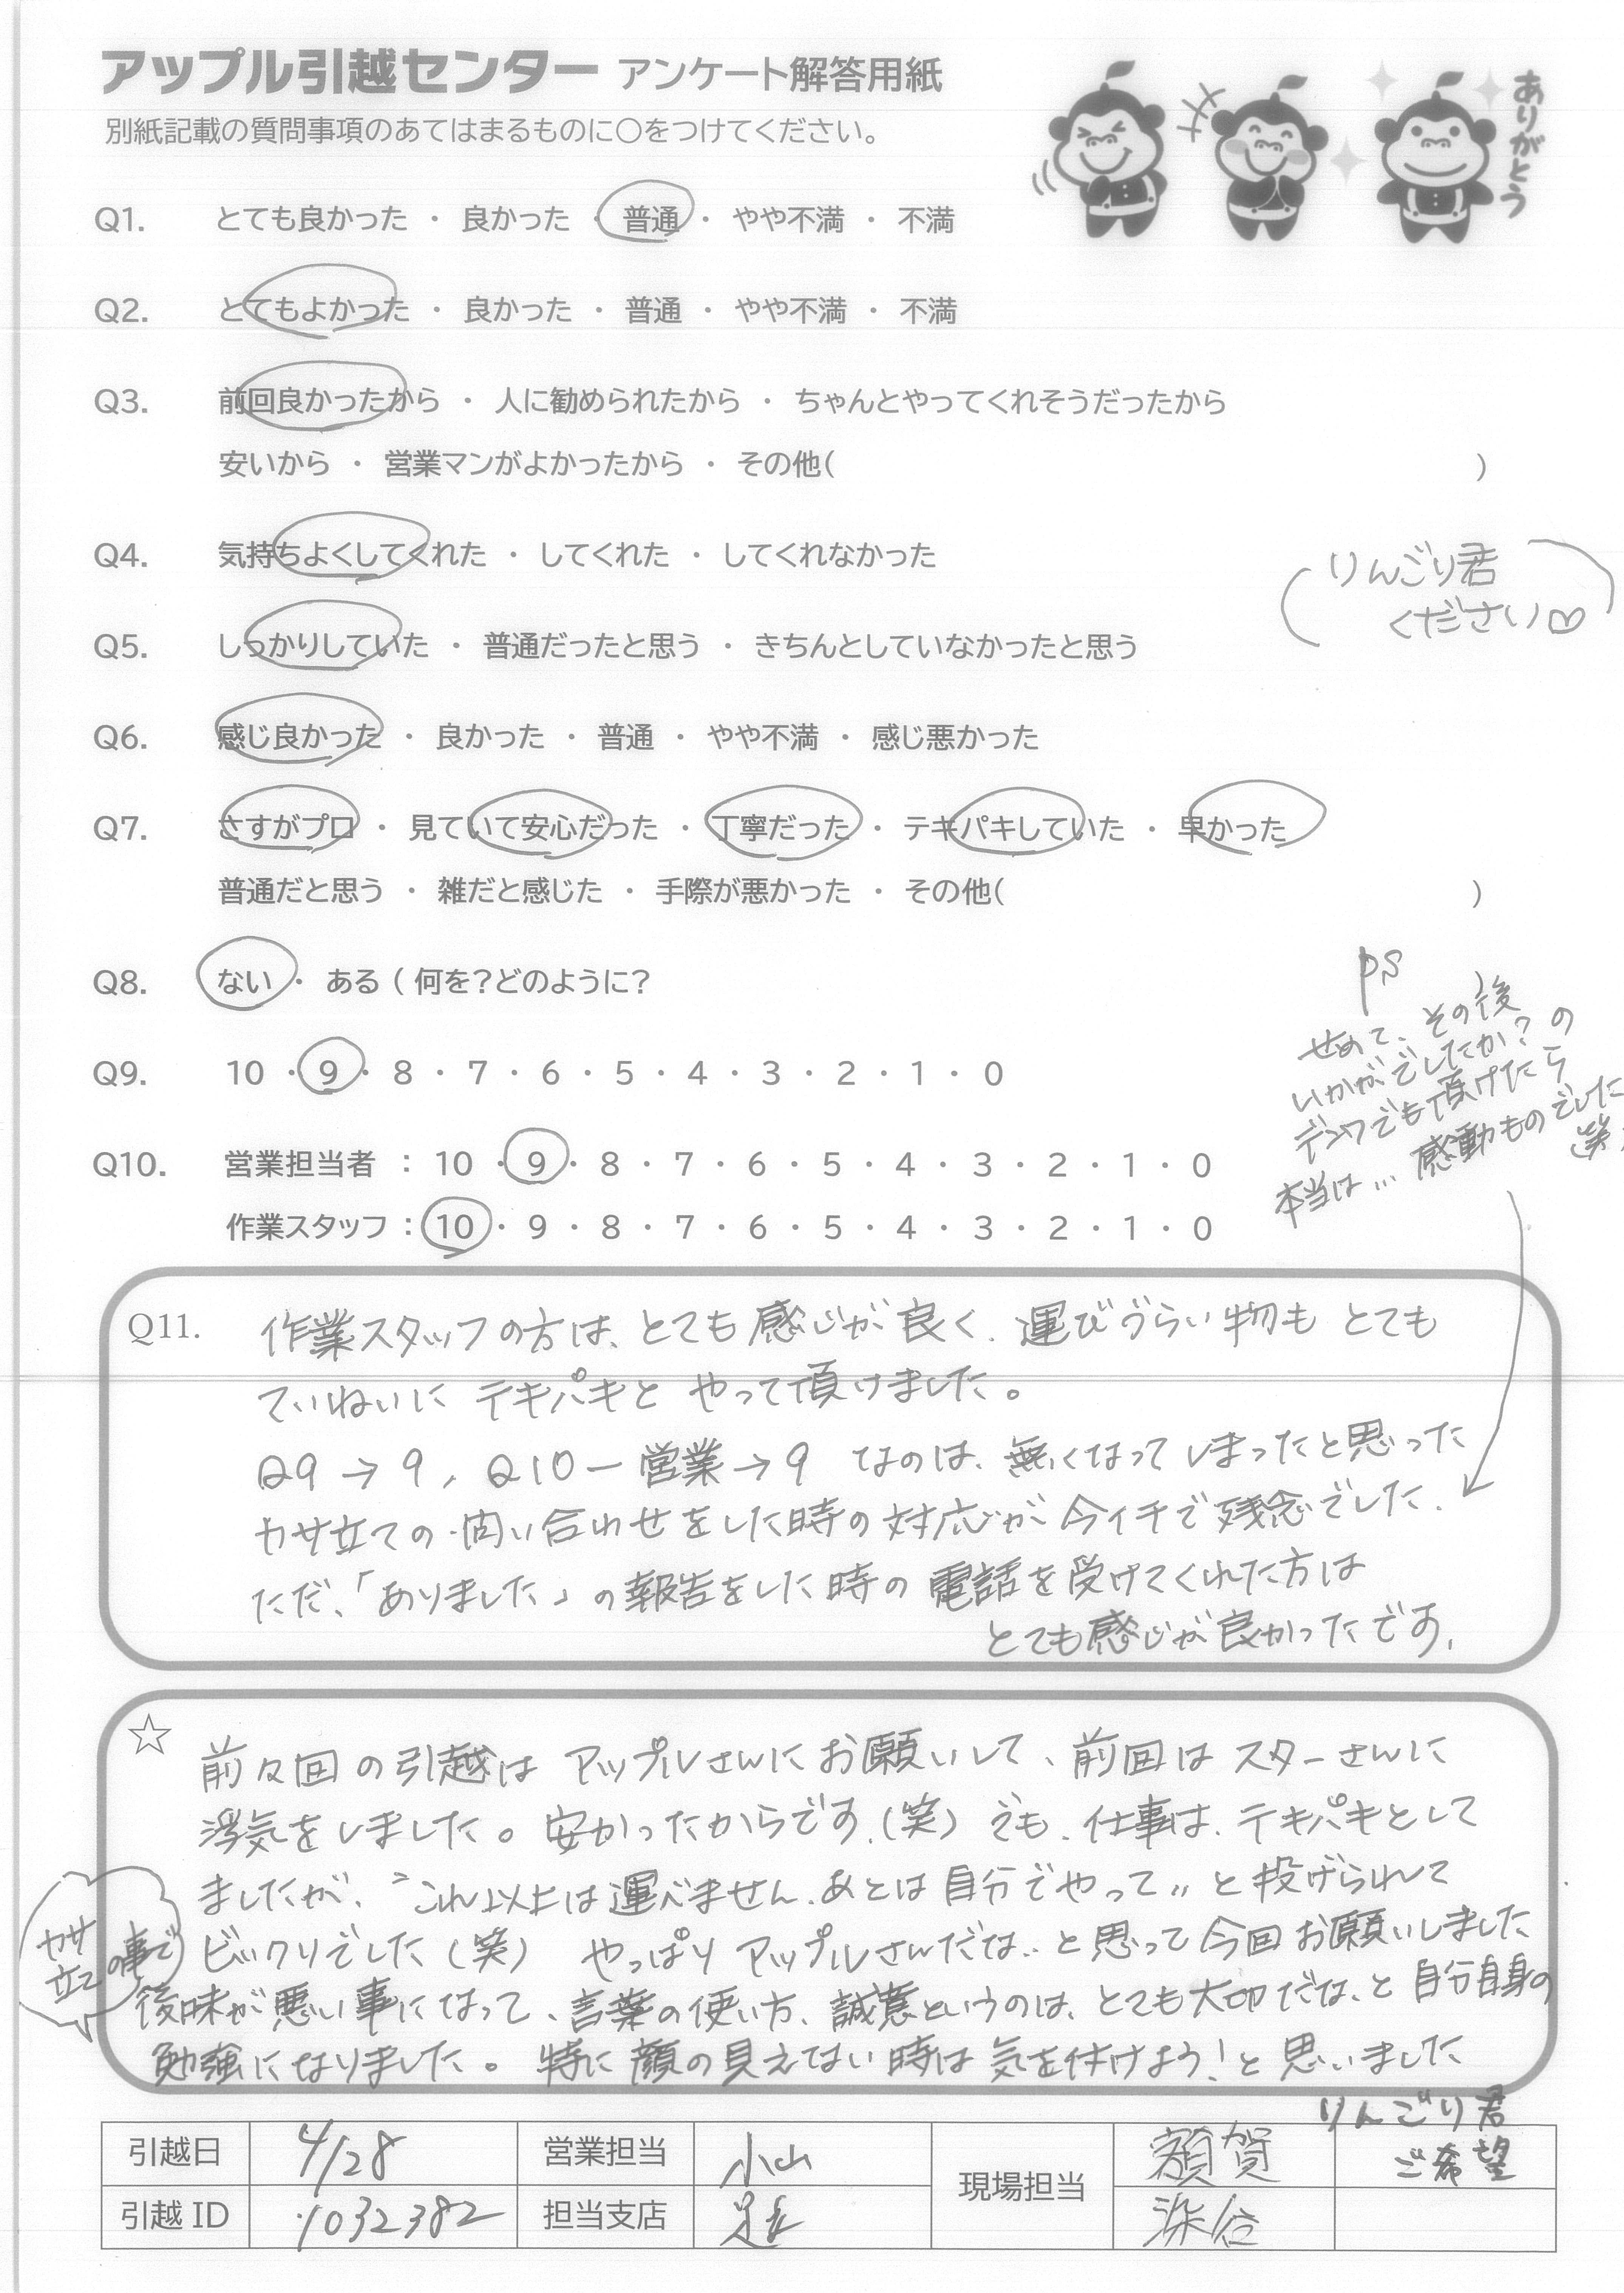 アップル引越センター アンケート解答用紙
別紙記載の質問事項のあてはまるものに〇をつけてください。
ありがとう
Q1. とても良かった ・ 良かった ・ 普通 ・ やや不満 ・ 不満
Q2. とてもよかった ・ 良かった ・ 普通 ・ やや不満 ・ 不満
Q3. 前回良かったから ・ 人に勧められたから ・ ちゃんとやってくれそうだったから
安いから ・ 営業マンがよかったから ・ その他( )
Q4. 気持ちよくしてくれた ・ してくれた ・ してくれなかった
りんごり君
ください♡
Q5. しっかりしていた ・ 普通だったと思う ・ きちんとしていなかったと思う
Q6. 感じ良かった ・ 良かった ・ 普通 ・ やや不満 ・ 感じ悪かった
Q7. さすがプロ ・ 見ていて安心だった ・ 丁寧だった ・ テキパキしていた ・ 早かった
普通だと思う ・ 雑だと感じた ・ 手際が悪かった ・ その他( )
Q8. ない ・ ある ( 何を?どのように? )
PS
せめて、その後
いかがでしたか?の
デンワでも頂けたら
本当は… 感動ものでした
笑
Q9. 10 ・ 9 ・ 8 ・ 7 ・ 6 ・ 5 ・ 4 ・ 3 ・ 2 ・ 1 ・ 0
Q10. 営業担当者 : 10 ・ 9 ・ 8 ・ 7 ・ 6 ・ 5 ・ 4 ・ 3 ・ 2 ・ 1 ・ 0
作業スタッフ : 10 ・ 9 ・ 8 ・ 7 ・ 6 ・ 5 ・ 4 ・ 3 ・ 2 ・ 1 ・ 0
Q11. 作業スタッフの方は、とても感じが良く、運びづらい物も とても
ていねいに テキパキと やって頂けました。
Q9→9, Q10ー営業→9 なのは、無くなってしまったと思った
カサ立ての問い合わせをした時の対応が今イチで残念でした。
ただ、「ありました」の報告をした時の電話を受けてくれた方は
とても感じが良かったです。
☆ 前々回の引越は アップルさんにお願いして、前回は スターさんに
浮気をしました。安かったからです。(笑) でも、仕事は、テキパキとして
ましたが、〝これ以上は運べません、あとは自分でやって〟と投げられて
ビックリでした(笑) やっぱり アップルさんだな‥と思って今回お願いしました
カサ立ての事で
後味が悪い事になって、言葉の使い方、誠意というのは、とても大切だな、と自分自身の
勉強になりました。特に顔の見えない時は気を付けよう!と思いました
りんごり君
ご希望
引越日 4/28 営業担当 小山 現場担当 額賀
引越 ID 1032382 担当支店 足立 染谷